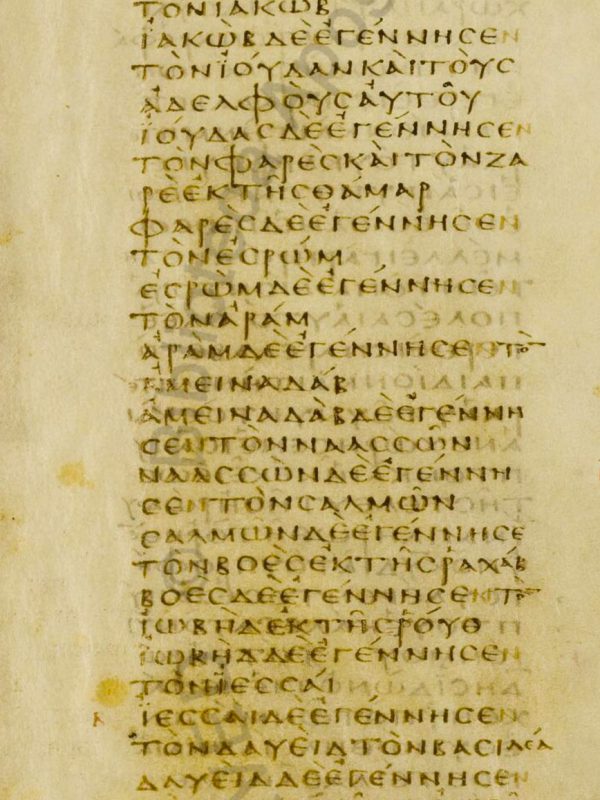 ΤΟΝΙΑΚΩΒ
ΙΑΚΩΒΔΕΕΓΕΝΝΗϹΕΝ
ΤΟΝΙΟΥΔΑΝΚΑΙΤΟΥϹ
ΑΔΕΛΦΟΥϹΑΥΤΟΥ
ΙΟΥΔΑϹΔΕΕΓΕΝΝΗϹΕΝ
ΤΟΝΦΑΡΕϹΚΑΙΤΟΝΖΑ
ΡΕΕΚΤΗϹΘΑΜΑΡ
ΦΑΡΕϹΔΕΕΓΕΝΝΗϹΕΝ
ΤΟΝΕϹΡΩΜ
ΕϹΡΩΜΔΕΕΓΕΝΝΗϹΕΝ
ΤΟΝΑΡΑΜ
ΑΡΑΜΔΕΕΓΕΝΝΗϹΕΝΤΟ¯
ΑΜΕΙΝΑΔΑΒ
ΑΜΕΙΝΑΔΑΒΔΕΕΓΕΝΝΗ
ϹΕΝΤΟΝΝΑΑϹϹΩΝ
ΝΑΑϹϹΩΝΔΕΕΓΕΝΝΗ
ϹΕΝΤΟΝϹΑΛΜΩΝ
ϹΑΛΜΩΝΔΕΕΓΕΝΝΗϹΕ
ΤΟΝΒΟΕϹΕΚΤΗϹΡΑΧΑΒ
ΒΟΕϹΔΕΕΓΕΝΝΗϹΕΝΤΟ¯
ΙΩΒΗΔΕΚΤΗϹΡΟΥΘ
ΙΩΒΗΔΔΕΕΓΕΝΝΗϹΕΝ
ΤΟΝΙΕϹϹΑΙ
ΙΕϹϹΑΙΔΕΕΓΕΝΝΗϹΕΝ
ΤΟΝΔΑΥΕΙΔΤΟΝΒΑϹΙΛΕΑ
ΔΑΥΕΙΔΔΕΕΓΕΝΝΗϹΕΝ